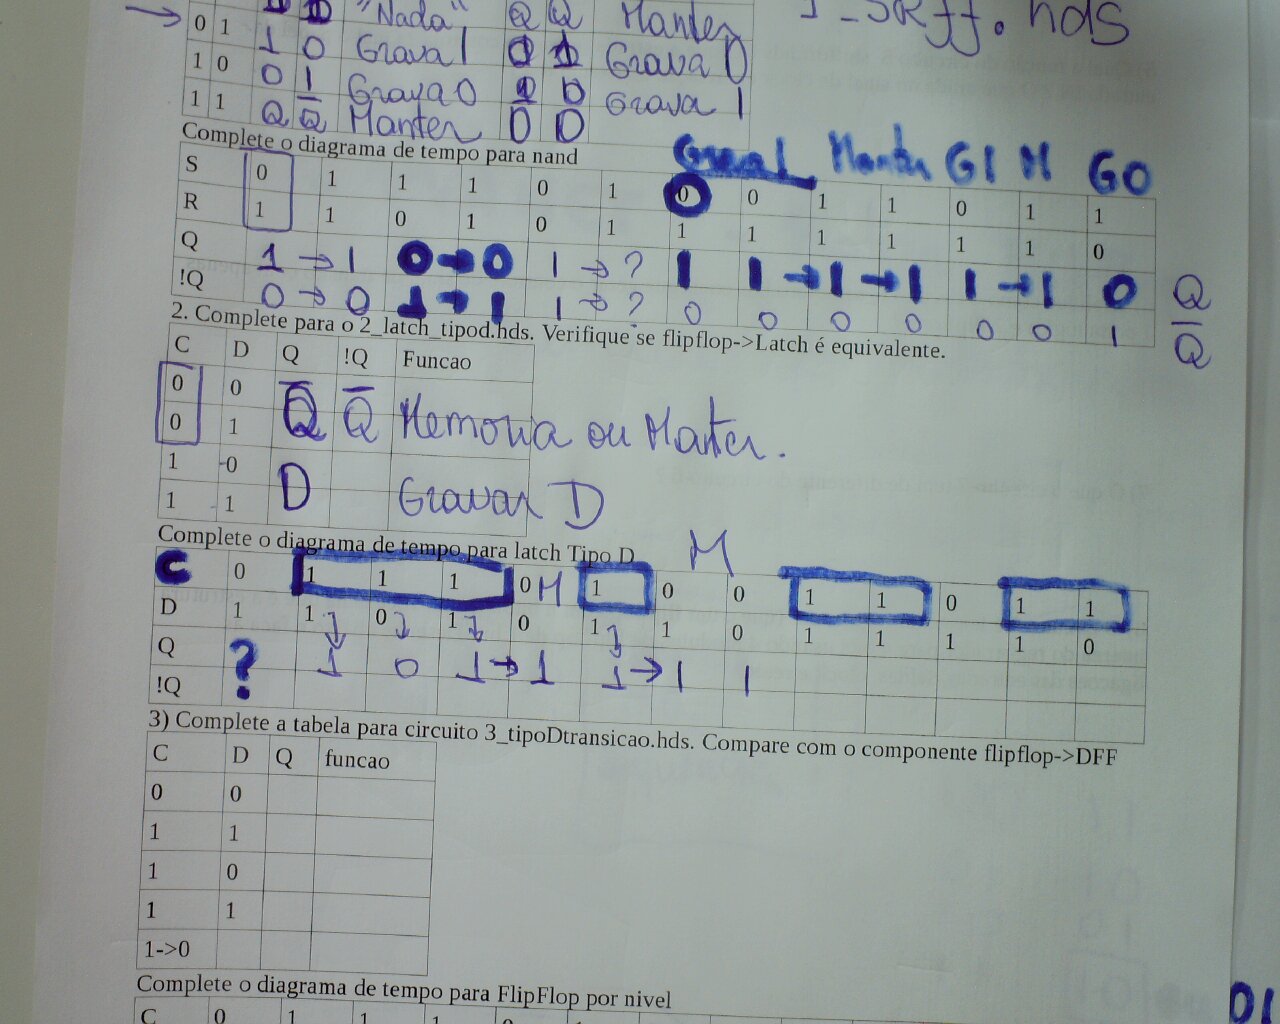 "Nada" Q Q Manter 1_SRff.hds
0 1 1 0 Grava 1 Grava 0
1 0 0 1 Grava 0 0 Grava 1
1 1 Q Q̅ Manter 0 0
Complete o diagrama de tempo para nand
Graval Manter G1 M G0
S 0 1 1 1 0 1 0 0 1 1 0 1 1
R 1 1 0 1 0 1 1 1 1 1 1 1 0
Q 1 → 1 0 → 0 1 → ? 1 1 → 1 → 1 1 → 1 0 Q
!Q 0 → 0 1 → 1 1 → ? 0 0 0 0 0 0 1 Q̅
2. Complete para o 2_latch_tipod.hds. Verifique se flipflop->Latch é equivalente.
C D Q !Q Funcao
0 0
0 1 Q̅ Q̅ Memoria ou Manter.
1 0
1 1 D Gravar D
Complete o diagrama de tempo para latch Tipo D M
C 0 1 1 1 0 M 1 0 0 1 1 0 1 1
D 1 1 0 1 0 1 1 0 1 1 1 1 0
Q ? 1 0 1 → 1 1 → 1 1
!Q
3) Complete a tabela para circuito 3_tipoDtransicao.hds. Compare com o componente flipflop->DFF
C D Q funcao
0 0
1 1
1 0
1 1
1->0
Complete o diagrama de tempo para FlipFlop por nivel
C 0 1 1 1 0 1
01